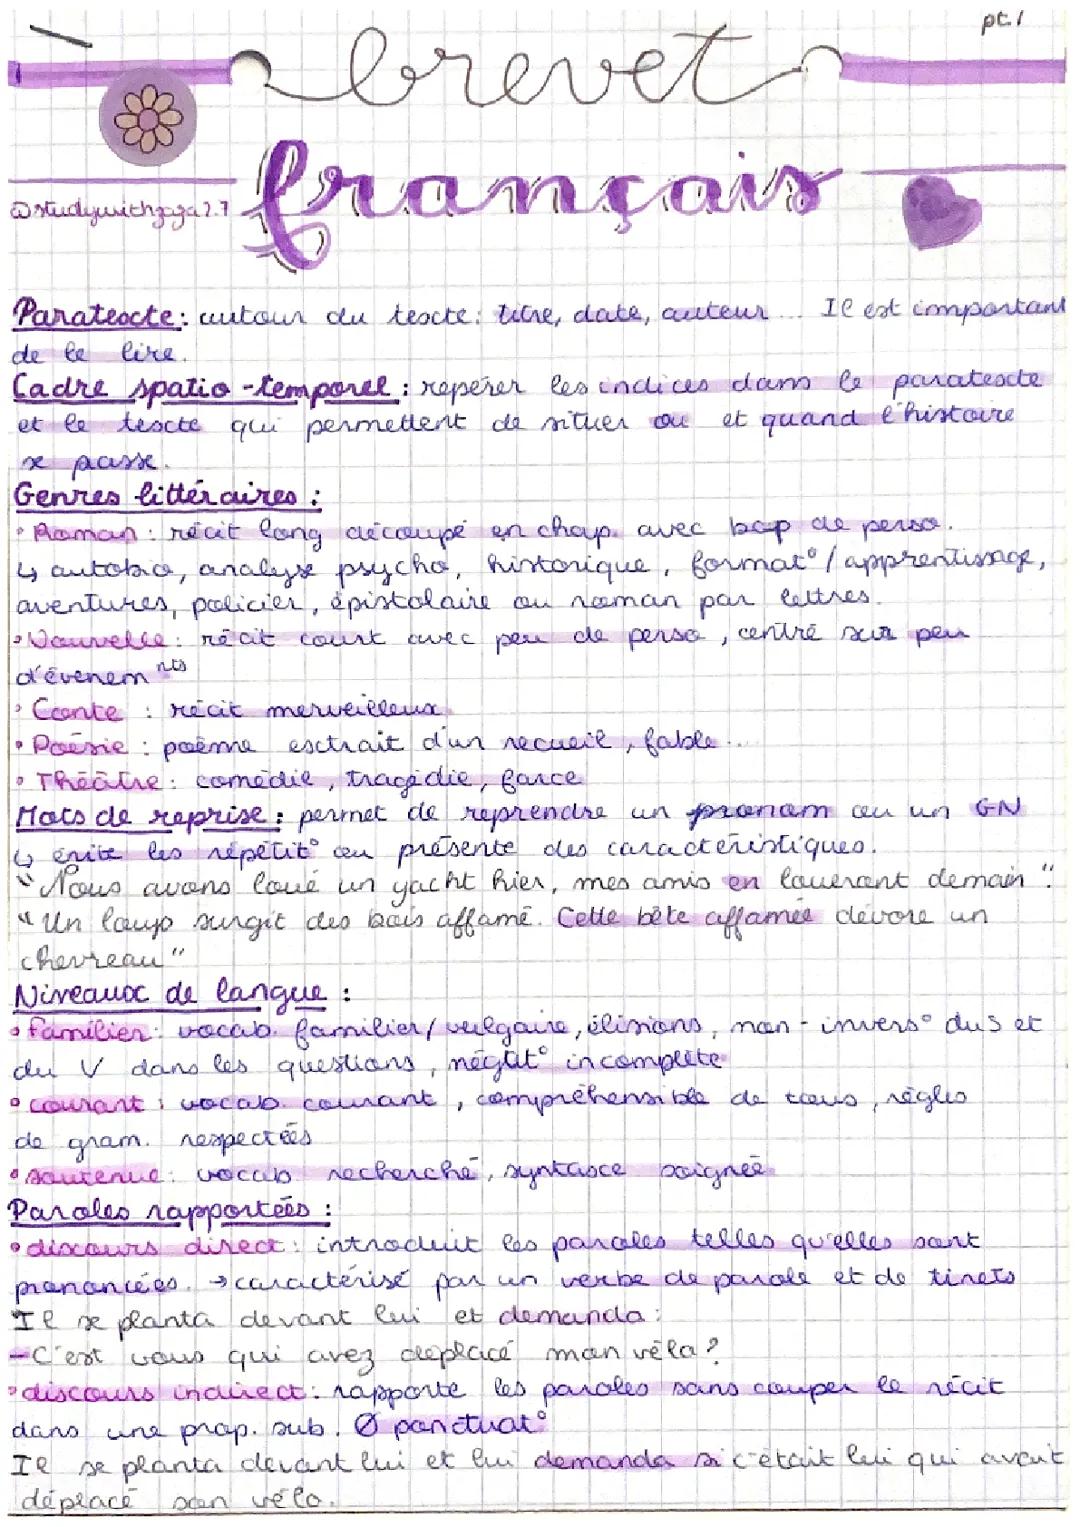 pt.1
brevet
français
@studywithzaza2.7
Paratexte : autour du texte : titre, date, auteur ... Il est important
de le lire.
Cadre spatio-temporel : repérer les indices dans le paratexte
et le texte qui permettent de situer où et quand l'histoire
se passe.
Genres littéraires :
• Roman : récit long découpé en chap. avec bcp de perso.
↳ autobio, analyse psycho, historique, format° / apprentissage,
aventures, policier, épistolaire ou roman par lettres.
• Nouvelle : récit court avec peu de perso, centré sur peu
d'évenem nts
• Conte : récit merveilleux
• Poésie : poème extrait d'un recueil, fable...
• Théâtre : comédie, tragédie, farce
Mots de reprise : permet de reprendre un pronom ou un GN
↳ évite les répétit° ou présente des caractéristiques.
"Nous avons loué un yacht hier, mes amis en loueront demain".
"Un loup surgit des bois affamé. Cette bête affamée dévore un
chevreau"
Niveaux de langue :
• familier : vocab. familier/vulgaire, élisions, non-invers° du S et
du V dans les questions, négat° incomplète
• courant : vocab. courant, compréhensible de tous, règles
de gram. respectées
• soutenue : vocab recherché, syntaxe soignée
Paroles rapportées :
• discours direct : introduit les paroles telles qu'elles sont
prononcées. → caractérisé par un verbe de parole et de tirets
Il se planta devant lui et demanda :
- C'est vous qui avez déplacé mon vélo ?
• discours indirect : rapporte les paroles sans couper le récit
dans une prop. sub. Ø ponctuat°
Il se planta devant lui et lui demanda si c'était lui qui avait
déplacé son vélo.